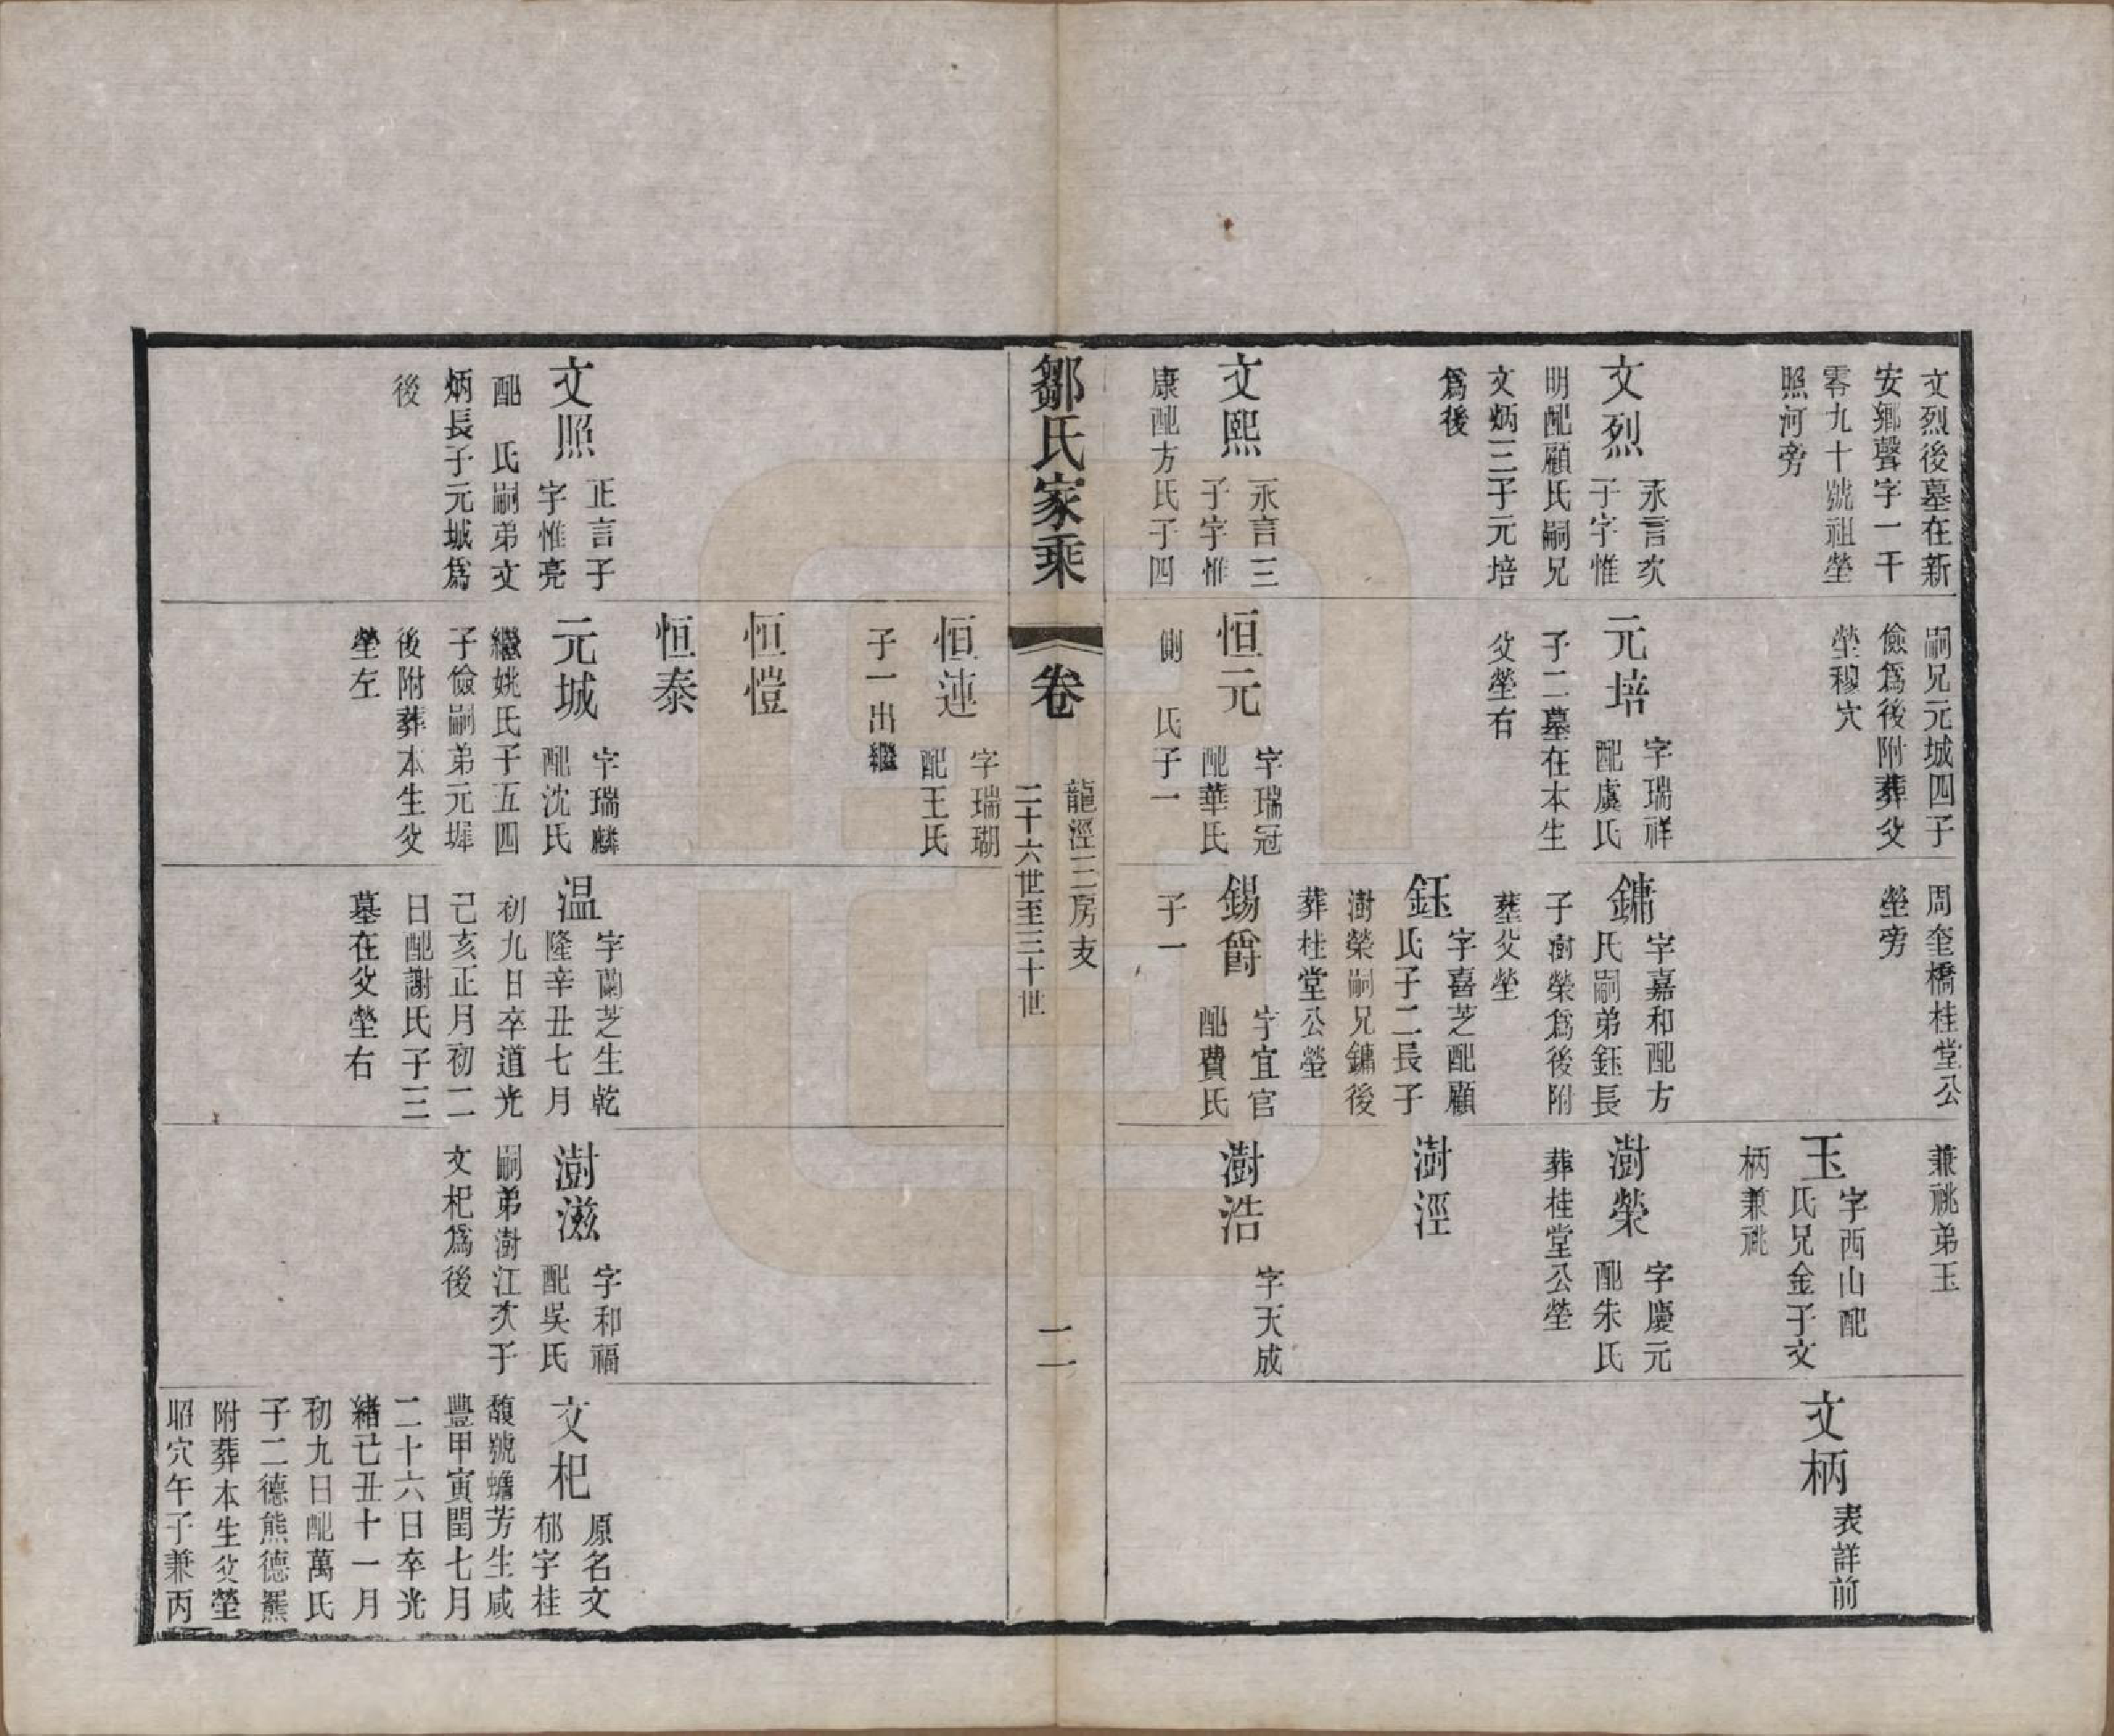 文烈後墓在新
安鄉聲字一千
零九十號祖塋
照河旁
文烈
永言次
子字惟
明配顧氏嗣兄
文炳三子元培
爲後
文熙
永言三
子字惟
康配方氏子四
嗣兄元城四子
儉爲後附葬父
塋穆穴
元培
字瑞祥
配虞氏
子二墓在本生
父塋右
恒元
字瑞冠
配華氏
側　氏子一
周奎橋桂堂公
塋旁
鏞
字嘉和配方
氏嗣弟鈺長
子樹榮爲後附
葬父塋
鈺
字喜芝配顧
氏子二長子
澍榮嗣兄鏞後
葬桂堂公塋
錫爵
字宜官
配費氏
子一
兼祧弟玉
玉
字西山配
氏兄金子文
柄兼祧
澍榮
字慶元
配朱氏
葬桂堂公塋
澍涇
澍浩
字天成
文柄
表詳前
鄒氏家乘
卷
龍涇二房支
二十六世至三十世
二
文照
正言子
字惟亮
配　氏嗣弟文
炳長子元城爲
後
恒蓮
字瑞瑚
配王氏
子一出繼
恒愷
恒泰
元城
字瑞麟
配沈氏
繼姚氏子五四
子儉嗣弟元墀
後附葬本生父
塋左
温
字蘭芝生乾
隆辛丑七月
初九日卒道光
己亥正月初二
日配謝氏子三
墓在父塋右
澍滋
字和福
配吳氏
嗣弟澍江次子
文杞爲後
文杞
原名文
郁字桂
馥號蟾芳生咸
豐甲寅閏七月
二十六日卒光
緒己丑十一月
初九日配萬氏
子二德熊德羆
附葬本生父塋
昭穴午子兼丙